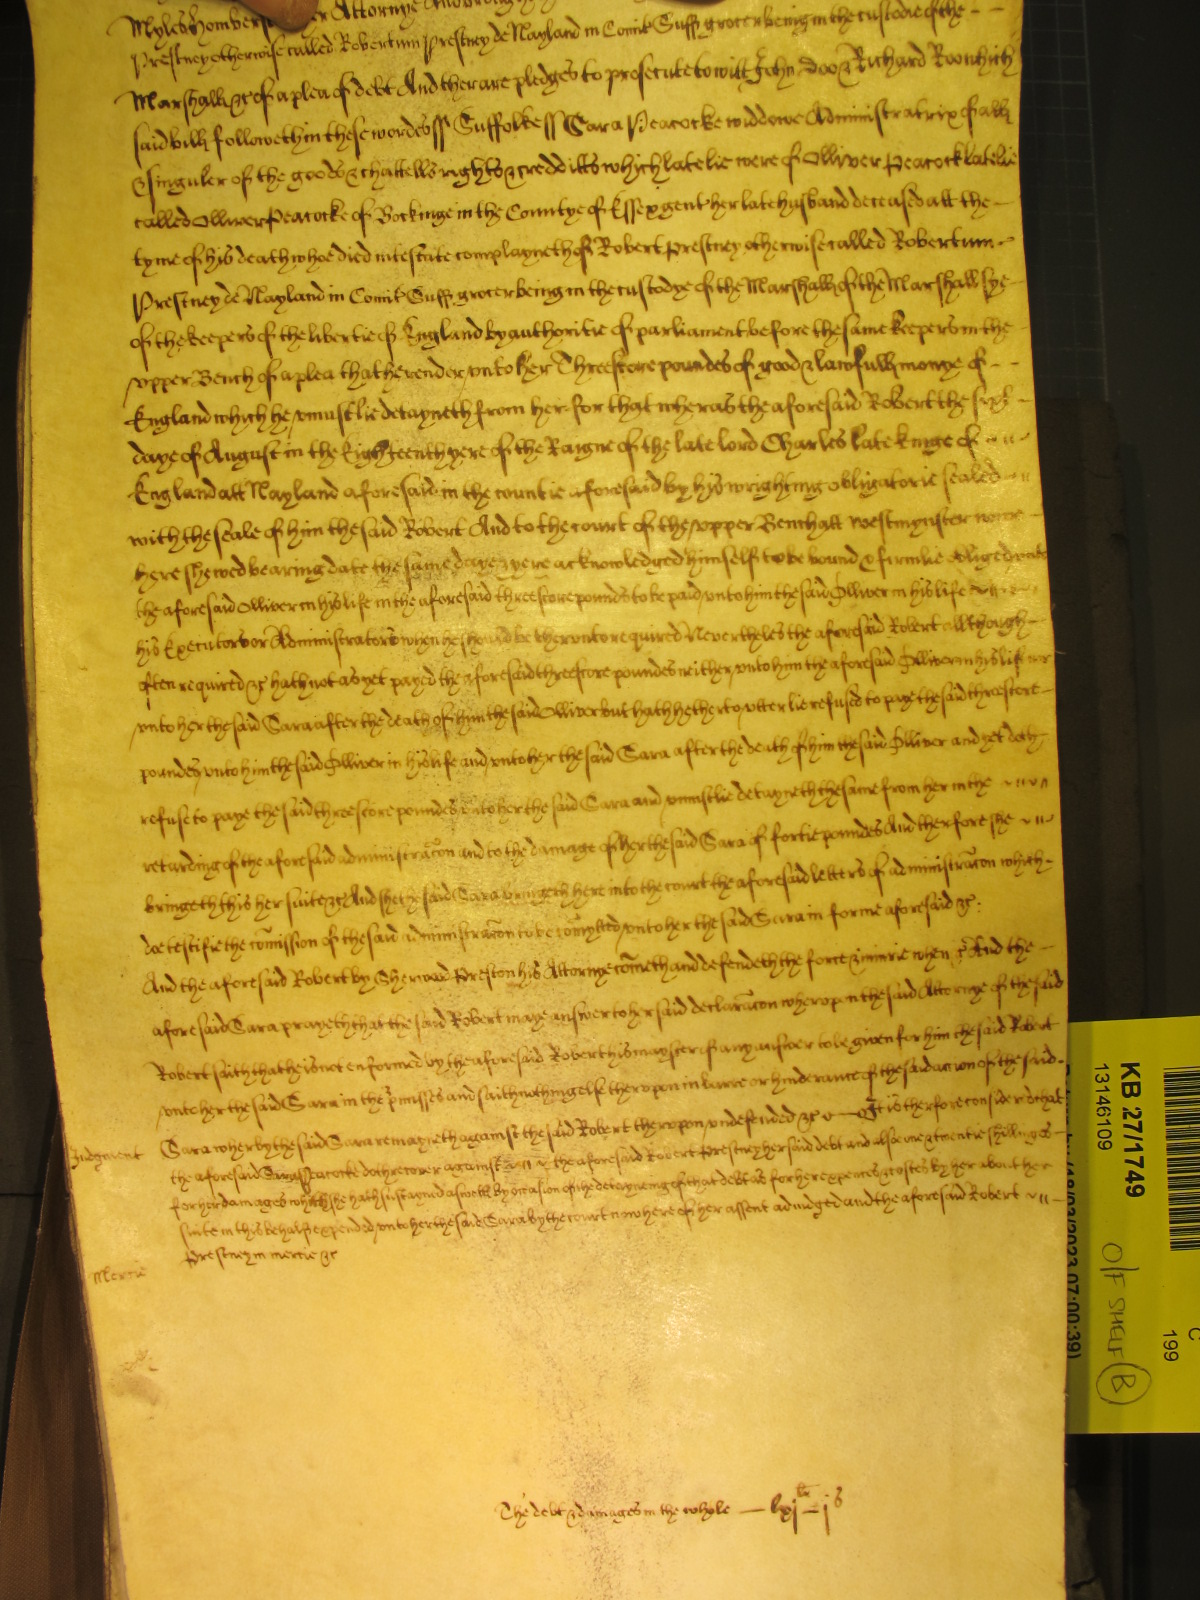 Myles Homber her Attornye
Prestney otherwise called Robertum Prestney de Nayland in Comit Suff grocer being in the custodie of the - -
Marshall &c of a plea of debt And ther are pledges to prosecute to witt John Doo & Richard Roo which
said bill followeth in these wordes ss Suffolke ss Sara Peacocke widdowe Administratrix of all
& singuler of the goods & chattells rights & credditts which latelie were of Olliver Peacock latelie
called Olliver Peacocke of Bockinge in the Countye of Essex gent her late husband deceased att the -
tyme of his death whoe died intestate complayneth of Robert Prestney otherwise called Robertum
Prestney de Nayland in Comit Suff grocer being in the custodye of the Marshall of the Marshallsye
of the keepers of the libertie of England by authoritie of parliament before the same keepers in the
upper Bench of a plea that he render unto her Threescore poundes of good & lawfull monye of - -
England which he uniustlie detayneth from her for that wheras the aforesaid Robert the
daye of August in the Eighteenth yere of the Raigne of the late lord Charles late kinge of
England att Nayland aforesaid in the countie aforesaid by his wrighting obligatorie sealed
with the seale of him the said Robert And to the court of the upper Bench att Westmynster nowe
here shewed bearing date the same daye & yere acknowledged himself to be bound & firmlie obliged unto
the aforesaid Olliver in his life in the aforesaid threescore pounds to be paid unto him the said Olliver in his life
his Executors or Administrators when he should be therunto required Nevertheles the aforesaid Robert allthough
often required &c hath not as yet payed the aforesaid threescore poundes neither unto him the aforesaid Olliver in his life nor
unto her the said Sara after the death of him the said Olliver but hath hetherto utterlie refused to paye the said threescore
poundes unto him the said Olliver in his life and unto her the said Sara after the death of him the said Olliver and yet doth
refuse to paye the said threescore poundes unto her the said Sara and uniustlie detayneth the same from her in the
retarding of the aforesaid administracon and to the damage of her the said Sara of fortie poundes And therfore she
bringeth this her suite &c And she the said Sara bringeth here into the court the aforesaid letters of administracon which
doe testifie the comission of the said administracon to be comytted unto her the said Sara in forme aforesaid &c:
And the aforesaid Robert by Sherwood Preston his Attornye cometh and defendeth the force & iniurie when &c And the
aforesaid Sara prayeth that the said Robert maye answer to her said declaracon wherupon the said Attornye of the said
Robert saith that he is not enformed by the aforesaid Robert his mayster if any answer to be given for him the said Robert
unto her the said Sara in the pmisses and saith nothing els therupon in barre or hinderance of the said action of the said
Sara wherby the said Sara remayneth against the said Robert therupon undefended &c It is therfore considered that
Judgment the aforesaid Sara Peacocke doth recover against the aforesaid Robert Prestney her said debt and alsoe one & twentie shillinges
for her damages which she hath sustayned aswell by occasion of the detayneing of that debt as for her expences & costes by her about her
suite in this behalfe expended unto her the said Sara by the court nowe here of her assent adiudged and the aforesaid Robert
Prestney in mercie &c
Mercie
The debt & damages in the whole — lxj li - j s
KB 27/1749
13146109
O/F SHELF B
07:00:39)
C
199